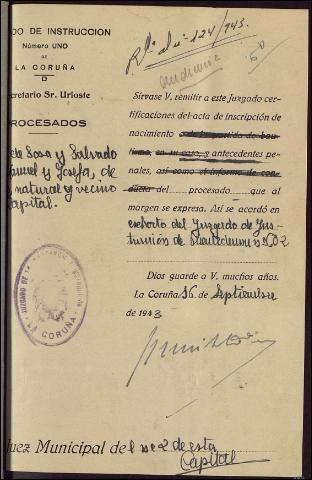 DO DE INSTRUCCION
Número UNO
DE
LA CORUÑA
D
cretario Sr. Urioste
ROCESADOS
Sosa y Salvado
y Josefa, de
natural y vecino
apital.
R.l al nº 124/943.
Sírvase V. remitir a este Juzgado cer-
tificaciones del acta de inscripción de
nacimiento o de la partida de bau-
tismo, en su caso, y antecedentes pe-
nales, así como el informe de con-
ducta del procesado que al
margen se expresa. Así se acordó en
exhorto del Juzgado de Ins-
trucción de nº 602
Dios guarde a V. muchos años.
La Coruña 16 de Septiembre
de 1943
LA CORUÑA
uez Municipal del nº 2 de esta
Capital